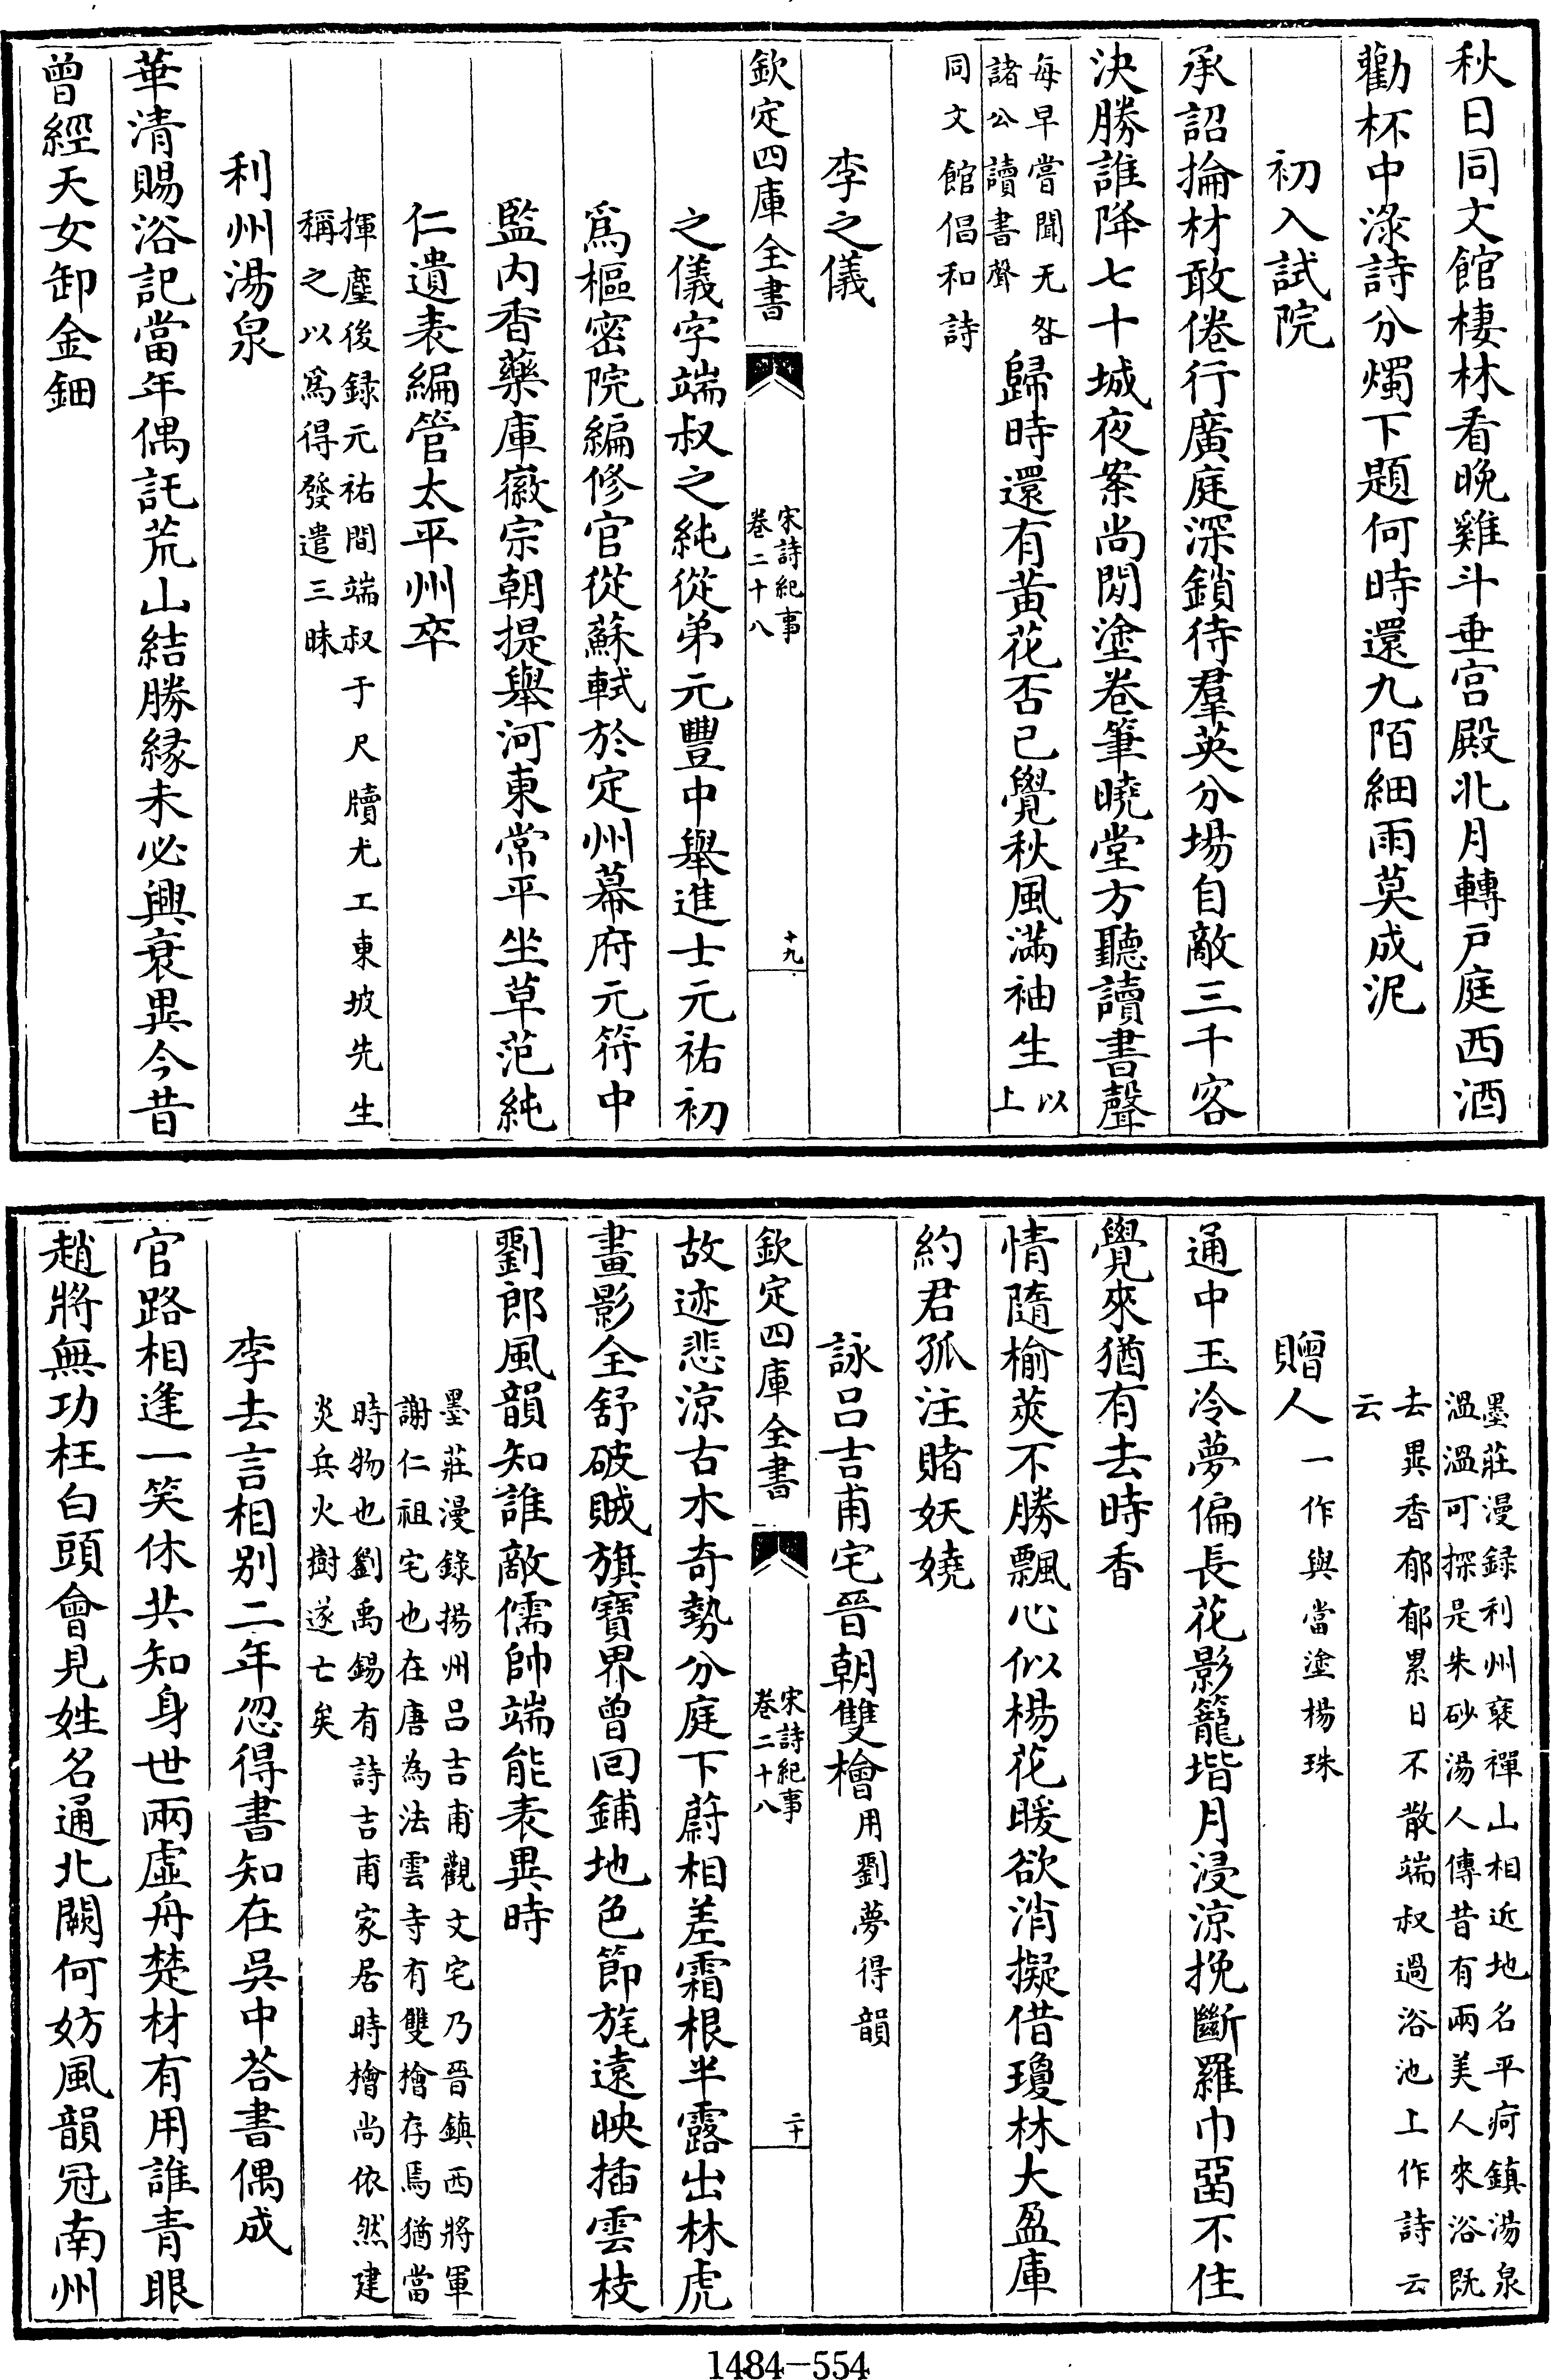 秋日同文館棲林看晚雞斗垂宫殿北月轉戶庭西酒
勸杯中淥詩分燭下題何時還九陌細雨莫成泥
初入試院
承詔掄材敢倦行廣庭深鎖待羣英分塲自敵三千客
決勝誰降七十城夜案尚閒塗卷筆曉堂方聽讀書聲
每早嘗聞无咎
諸公讀書聲
歸時還有黃花否已覺秋風滿袖生
以
上
同文館倡和詩
李之儀
欽定四庫全書
宋詩紀事
卷二十八
十九
之儀字端叔之純從弟元豐中舉進士元祐初
爲樞密院編修官從蘇軾於定州幕府元符中
監内香藥庫徽宗朝提舉河東常平坐草范純
仁遺表編管太平州卒
揮麈後録元祐間端叔于尺牘尤工東坡先生
稱之以爲得發遣三昧
利州湯泉
華清賜浴記當年偶託荒山結勝緣未必興衰異今昔
曾經天女卸金鈿
墨莊漫録利州裒禪山相近地名平疴鎮湯泉
溫溫可探是朱砂湯人傳昔有兩美人來浴既
去異香郁郁累日不散端叔過浴池上作詩云
云
贈人
一作與當塗楊珠
通中玉冷夢偏長花影籠堦月浸涼挽斷羅巾畱不住
覺來猶有去時香
情隨榆莢不勝飄心似楊花暖欲消擬借瓊林大盈庫
約君孤注賭妖嬈
詠吕吉甫宅晉朝雙檜
用劉夢得韻
欽定四庫全書
宋詩紀事
卷二十八
二十
故迹悲涼古木奇勢分庭下蔚相差霜根半露出林虎
畫影全舒破賊旗寶界曾回鋪地色節旄遠映插雲枝
劉郎風韻知誰敵儒帥端能表異時
墨莊漫錄揚州吕吉甫觀文宅乃晉鎮西將軍
謝仁祖宅也在唐為法雲寺有雙檜存焉猶當
時物也劉禹錫有詩吉甫家居時檜尚依然建
炎兵火樹遂亡矣
李去言相别二年忽得書知在吳中荅書偶成
官路相逢一笑休共知身世兩虛舟楚材有用誰青眼
趙將無功枉白頭會見姓名通北闕何妨風韻冠南州
1484—554